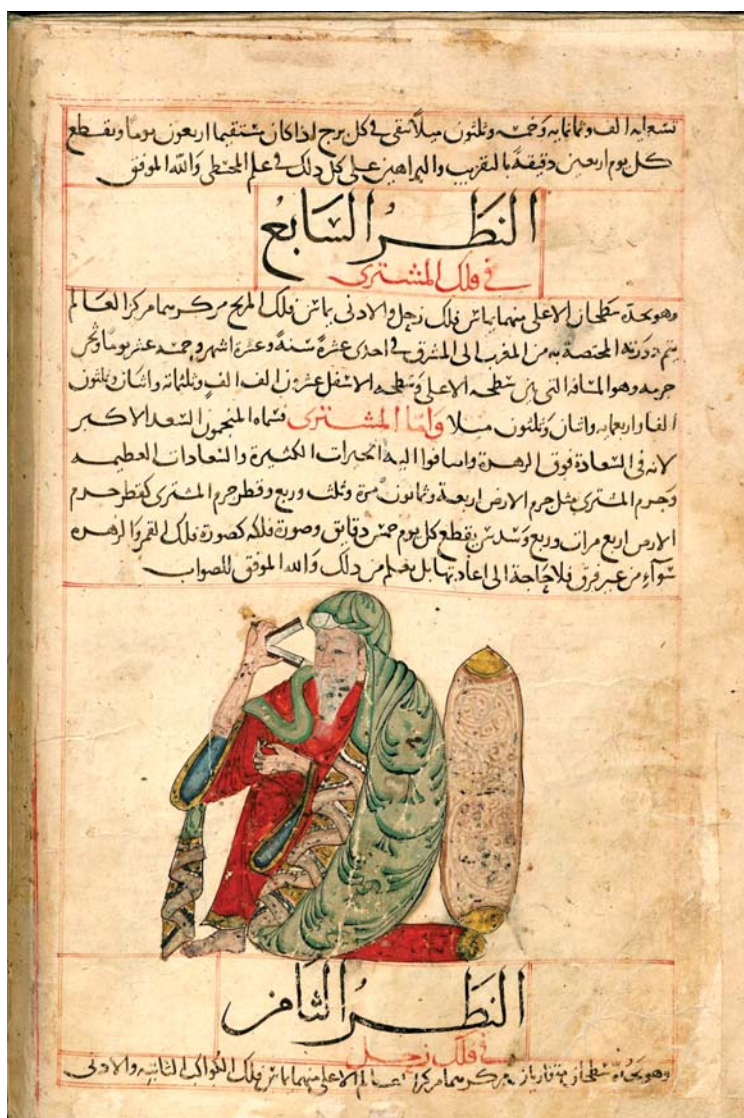 تسعمايه الف وثمانمايه وخمسه وثلثون ميلاً تبقى في كل برج اذا كان مستقيما اربعون يوماً ويقطع
كل يوم اربعين دقيقةً بالتقريب والبراهين على كل ذلك في علم المجسطى والله الموفق
النظر السابع
في فلك المشترى
وهو يحده سطحان الاعلى منهما يماس فلك زحل والادنى يماس فلك المريخ مركزهما مركز العالم
يتم دورته المختصة به من المغرب الى المشرق في احدى عشرة سنةً وعشرة اشهر وخمسه عشر يوماً وثخن
جرمه وهو المسافة التي بين سطحه الاعلى وسطحه الاسفل عشرون الف الف وثلثمائة واثنان وثلثون
الفا واربعمايه واثنان وثلثون ميلا واما المشترى فسماه المنجمون السعد الاكبر
لانه في السعادة فوق الزهرة واضافوا اليه الخيرات الكثيرة والسعادات العظيمه
وجرم المشترى مثل جرم الارض اربعة وثمانون مرة وثلث وربع وقطر جرم المشترى كقطر جرم
الارض اربع مرات وربع وسدس يقطع كل يوم خمس دقايق وصورة فلكه كصورة فلك القمر والزهره
سوآء من غير فرق فلا حاجة الى اعادتها بل يعلم من ذلك والله الموفق للصواب
النظر الثامن
في فلك زحل
وهو يحده سطحان مركزهما مركز العالم الاعلى منهما يماس فلك الكواكب الثابتيه والادنى